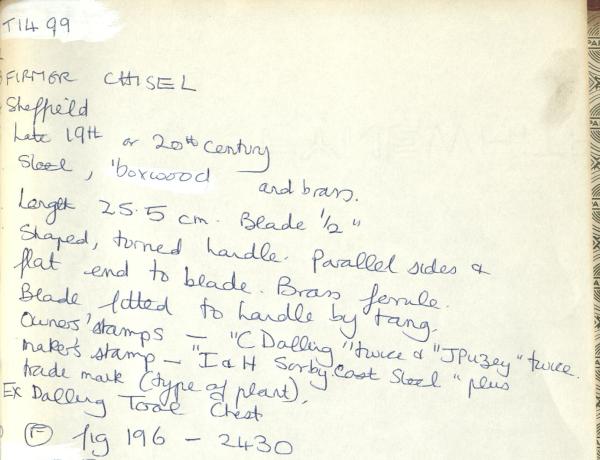 T14 99
FIRMER CHISEL
Sheffield
Late 19th or 20th Century
Steel, 'boxwood and brass.
Length 25.5 cm. Blade 1/2"
Shaped, turned handle. Parallel sides &
flat end to blade. Brass ferrule.
Blade fitted to handle by tang.
Owners' stamps – "C Dalling" twice & "J Puzey" twice.
maker's stamp – "I & H Sorby Cast Steel" plus
trade mark (type of plant).
Ex Dalling Tool Chest
(F) fig 196 – 2430